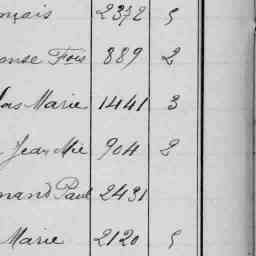 nçais 2372 5
onse Fois 889 2
las Marie 1441 3
Jean Mie 904 2
nand Paul 2431
Marie 2120 5